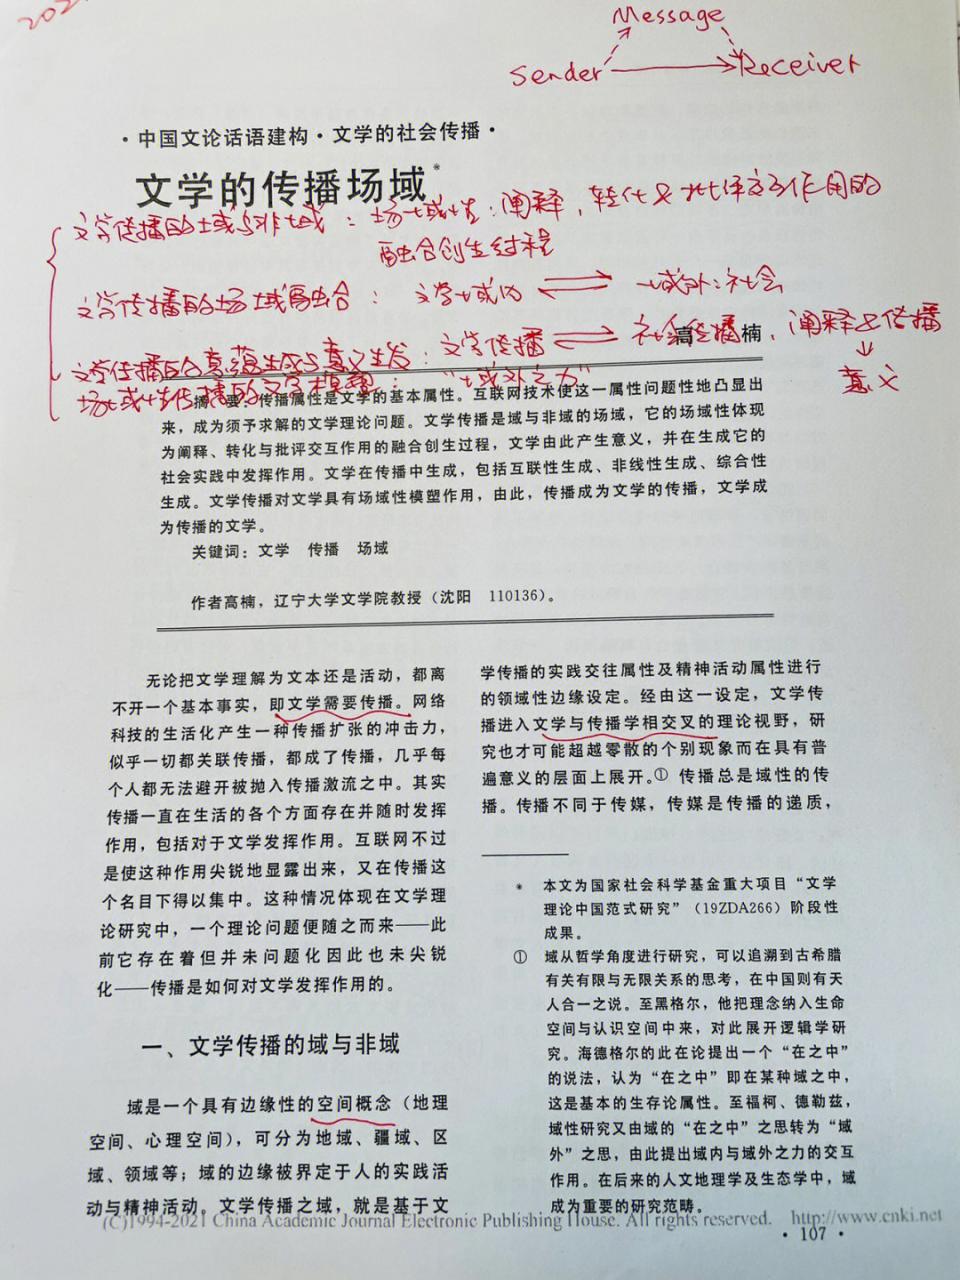 202
Message
Sender
Receiver
·中国文论话语建构·文学的社会传播·
文学的传播场域*
文学传播的域与非域：场域性：阐释，转化&批评交互作用的
融合创生过程
文学传播的场域融合：文学域内 ⇌ 域外：社会
文学传播的意蕴生成与意义生发：文学传播 ⇌ 社会传播，阐释&传播
↓
意义
场域性传播的文学模塑："域外之力"
高 楠
摘 要：传播属性是文学的基本属性。互联网技术使这一属性问题性地凸显出
来，成为须予求解的文学理论问题。文学传播是域与非域的场域，它的场域性体现
为阐释、转化与批评交互作用的融合创生过程，文学由此产生意义，并在生成它的
社会实践中发挥作用。文学在传播中生成，包括互联性生成、非线性生成、综合性
生成。文学传播对文学具有场域性模塑作用，由此，传播成为文学的传播，文学成
为传播的文学。
关键词：文学 传播 场域
作者高楠，辽宁大学文学院教授（沈阳 110136）。
无论把文学理解为文本还是活动，都离
不开一个基本事实，即文学需要传播。网络
科技的生活化产生一种传播扩张的冲击力，
似乎一切都关联传播，都成了传播，几乎每
个人都无法避开被抛入传播激流之中。其实
传播一直在生活的各个方面存在并随时发挥
作用，包括对于文学发挥作用。互联网不过
是使这种作用尖锐地显露出来，又在传播这
个名目下得以集中。这种情况体现在文学理
论研究中，一个理论问题便随之而来——此
前它存在着但并未问题化因此也未尖锐
化——传播是如何对文学发挥作用的。
一、文学传播的域与非域
域是一个具有边缘性的空间概念（地理
空间、心理空间），可分为地域、疆域、区
域、领域等；域的边缘被界定于人的实践活
动与精神活动。文学传播之域，就是基于文
学传播的实践交往属性及精神活动属性进行
的领域性边缘设定。经由这一设定，文学传
播进入文学与传播学相交叉的理论视野，研
究也才可能超越零散的个别现象而在具有普
遍意义的层面上展开。① 传播总是域性的传
播。传播不同于传媒，传媒是传播的递质，
* 本文为国家社会科学基金重大项目“文学
理论中国范式研究”（19ZDA266）阶段性
成果。
① 域从哲学角度进行研究，可以追溯到古希腊
有关有限与无限关系的思考，在中国则有天
人合一之说。至黑格尔，他把理念纳入生命
空间与认识空间中来，对此展开逻辑学研
究。海德格尔的此在论提出一个“在之中”
的说法，认为“在之中”即在某种域之中，
这是基本的生存论属性。至福柯、德勒兹，
域性研究又由域的“在之中”之思转为“域
外”之思，由此提出域内与域外之力的交互
作用。在后来的人文地理学及生态学中，域
成为重要的研究范畴。
(C)1994-2021 China Academic Journal Electronic Publishing House. All rights reserved. http://www.cnki.net
· 107 ·